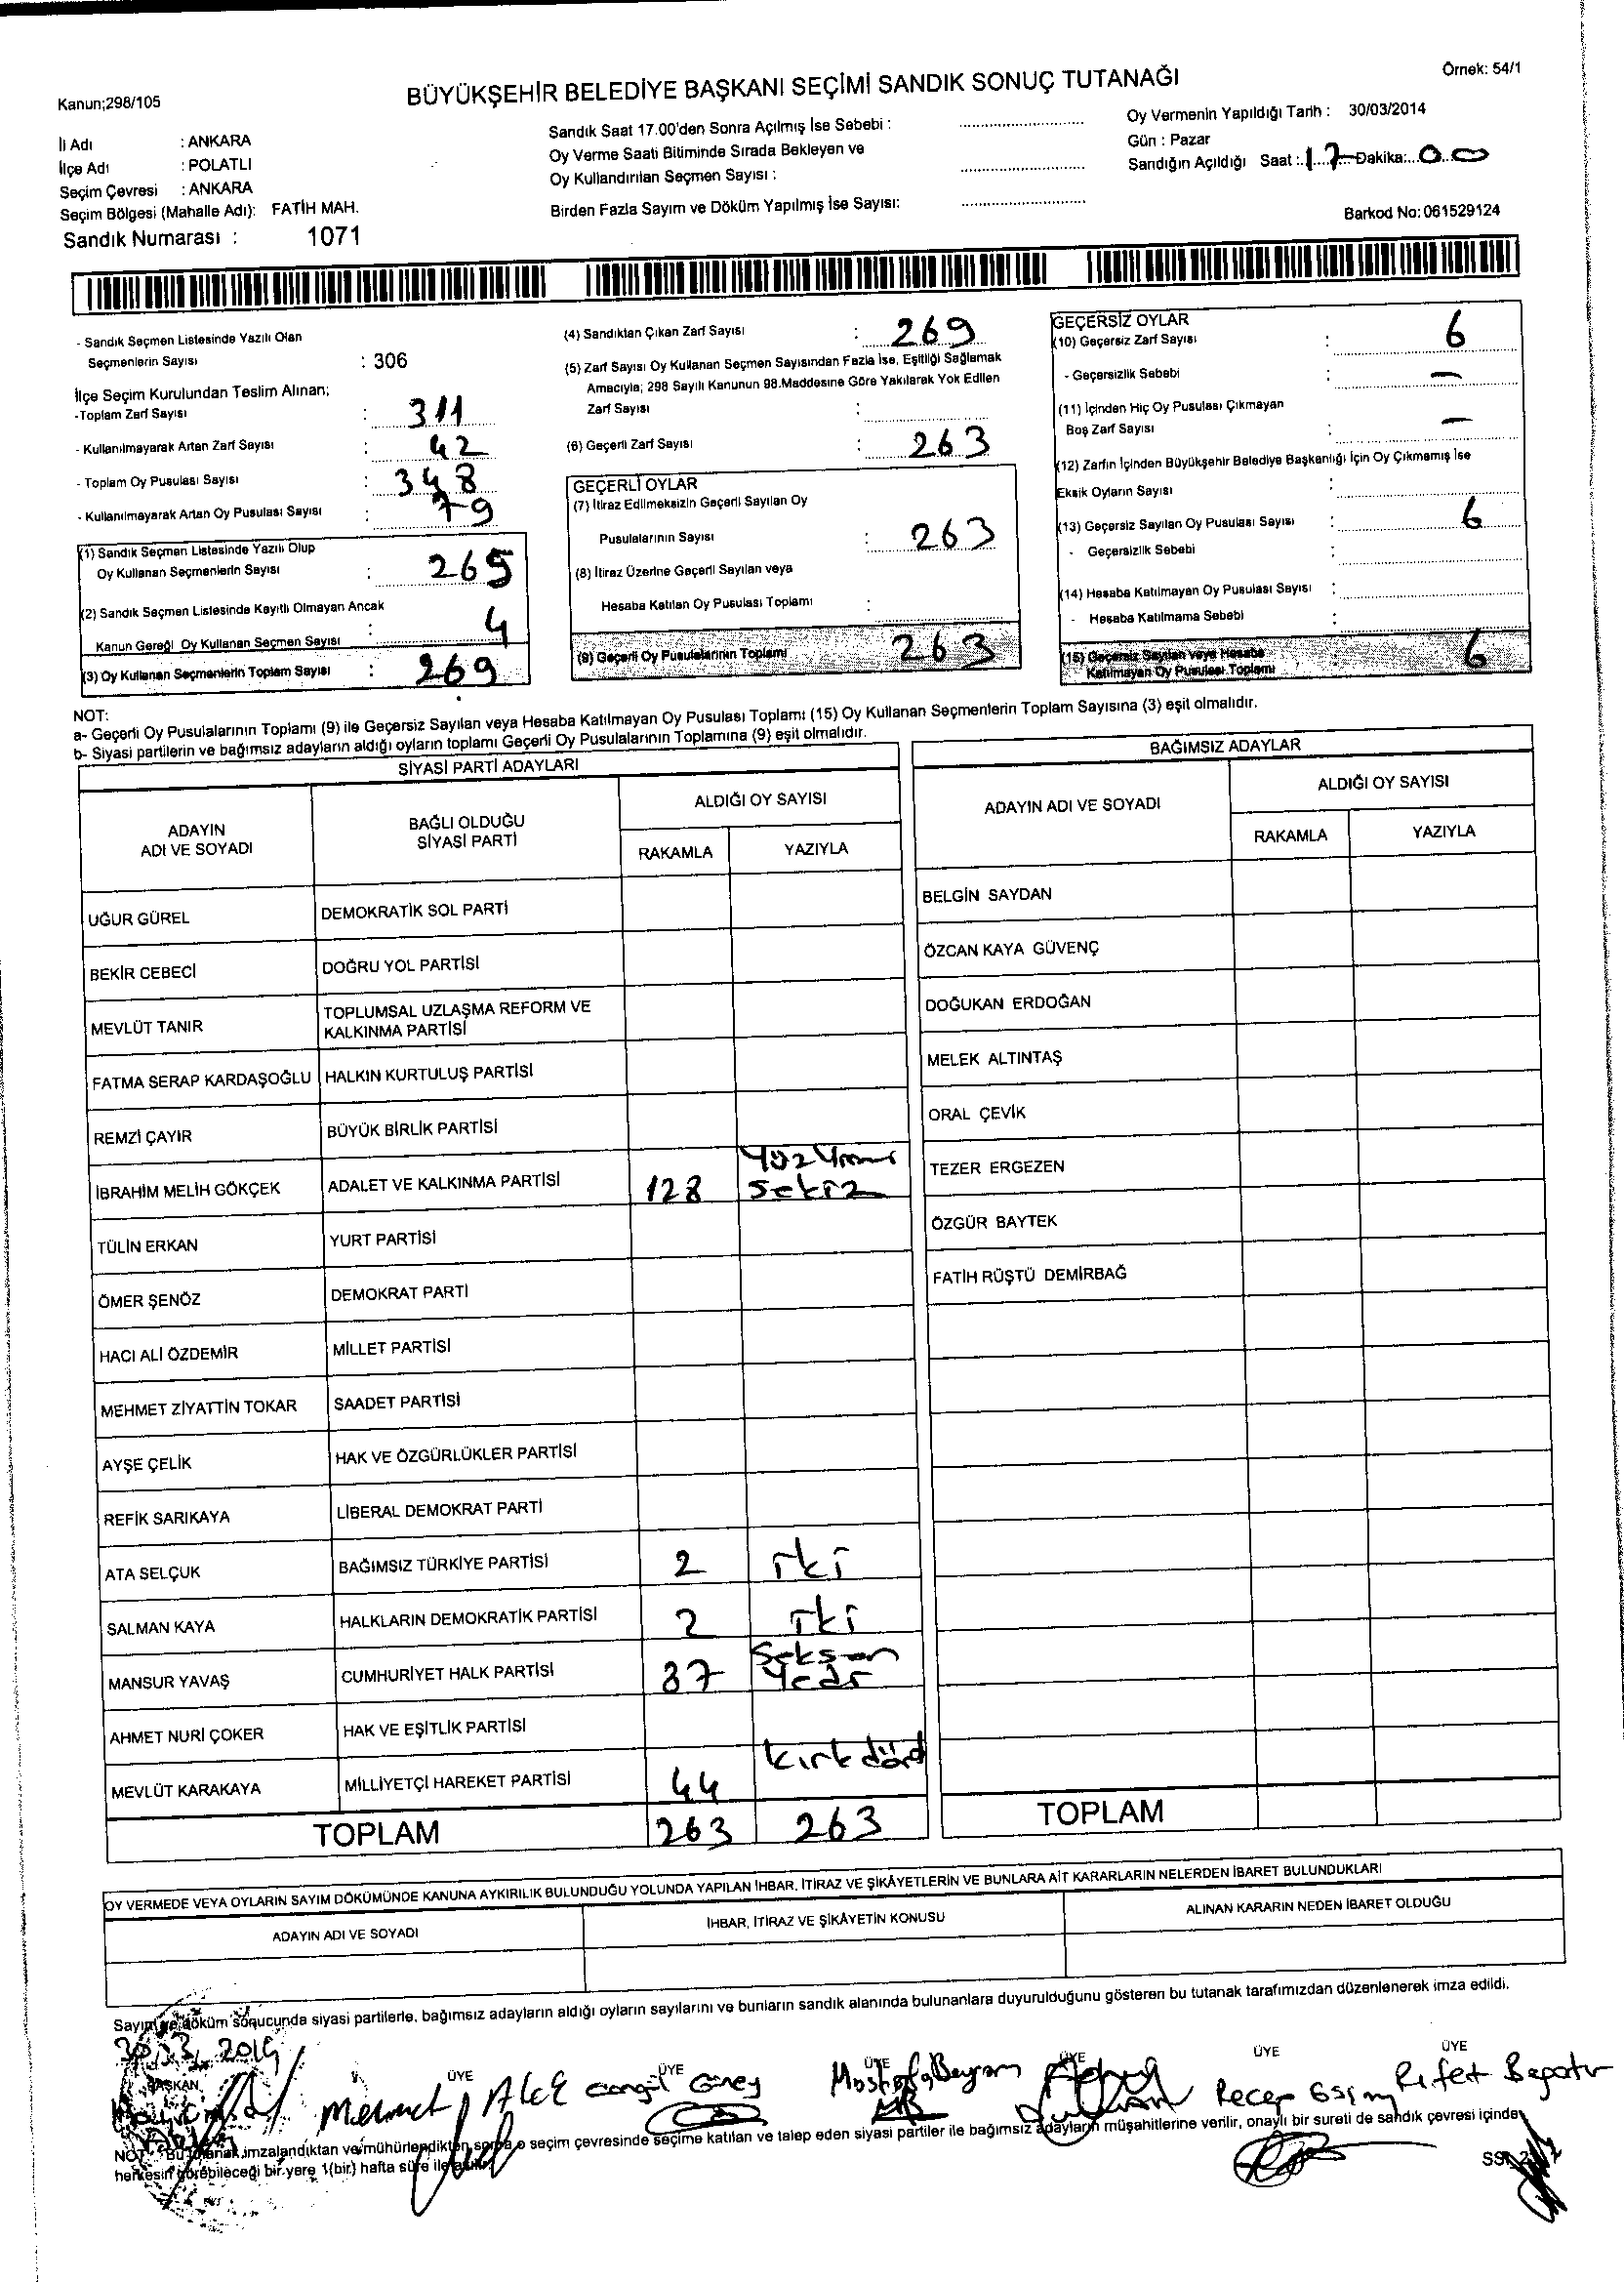 Örnek: 54/1
BÜYÜKŞEHİR BELEDİYE BAŞKANI SEÇİMİ SANDIK SONUÇ TUTANAĞI
Kanun;298/105
İli Adı : ANKARA
İlçe Adı : POLATLI
Seçim Çevresi : ANKARA
Seçim Bölgesi (Mahalle Adı): FATİH MAH.
Sandık Numarası : 1071
Sandık Saat 17.00'den Sonra Açılmış İse Sebebi :
Oy Verme Saati Bitiminde Sırada Bekleyen ve
Oy Kullandırılan Seçmen Sayısı :
Birden Fazla Sayım ve Döküm Yapılmış İse Sayısı:
Oy Vermenin Yapıldığı Tarih : 30/03/2014
Gün : Pazar
Sandığın Açıldığı Saat : 17 Dakika: 00
Barkod No: 061529124
- Sandık Seçmen Listesinde Yazılı Olan
Seçmenlerin Sayısı : 306
İlçe Seçim Kurulundan Teslim Alınan;
-Toplam Zarf Sayısı : 311
- Kullanılmayarak Artan Zarf Sayısı : 42
- Toplam Oy Pusulası Sayısı : 348
- Kullanılmayarak Artan Oy Pusulası Sayısı : 79
(1) Sandık Seçmen Listesinde Yazılı Olup
Oy Kullanan Seçmenlerin Sayısı : 265
(2) Sandık Seçmen Listesinde Kayıtlı Olmayan Ancak
Kanun Gereği Oy Kullanan Seçmen Sayısı : 4
(3) Oy Kullanan Seçmenlerin Toplam Sayısı : 269
(4) Sandıktan Çıkan Zarf Sayısı : 269
(5) Zarf Sayısı Oy Kullanan Seçmen Sayısından Fazla İse, Eşitliği Sağlamak
Amacıyla; 298 Sayılı Kanunun 98.Maddesine Göre Yakılarak Yok Edilen
Zarf Sayısı :
(6) Geçerli Zarf Sayısı : 263
GEÇERLİ OYLAR
(7) İtiraz Edilmeksizin Geçerli Sayılan Oy
Pusulalarının Sayısı : 263
(8) İtiraz Üzerine Geçerli Sayılan veya
Hesaba Katılan Oy Pusulası Toplamı :
(9) Geçerli Oy Pusulalarının Toplamı 263
GEÇERSİZ OYLAR
(10) Geçersiz Zarf Sayısı : 6
- Geçersizlik Sebebi : —
(11) İçinden Hiç Oy Pusulası Çıkmayan
Boş Zarf Sayısı : —
(12) Zarfın İçinden Büyükşehir Belediye Başkanlığı İçin Oy Çıkmamış İse
Eksik Oyların Sayısı :
(13) Geçersiz Sayılan Oy Pusulası Sayısı : 6
- Geçersizlik Sebebi :
(14) Hesaba Katılmayan Oy Pusulası Sayısı :
- Hesaba Katılmama Sebebi :
(15) Geçersiz Sayılan veya Hesaba
Katılmayan Oy Pusulası Toplamı : 6
NOT:
a- Geçerli Oy Pusulalarının Toplamı (9) ile Geçersiz Sayılan veya Hesaba Katılmayan Oy Pusulası Toplamı (15) Oy Kullanan Seçmenlerin Toplam Sayısına (3) eşit olmalıdır.
b- Siyasi partilerin ve bağımsız adayların aldığı oyların toplamı Geçerli Oy Pusulalarının Toplamına (9) eşit olmalıdır.
SİYASİ PARTİ ADAYLARI
ADAYIN
ADI VE SOYADI
BAĞLI OLDUĞU
SİYASİ PARTİ
ALDIĞI OY SAYISI
RAKAMLA YAZIYLA
UĞUR GÜREL DEMOKRATİK SOL PARTİ
BEKİR CEBECİ DOĞRU YOL PARTİSİ
MEVLÜT TANIR TOPLUMSAL UZLAŞMA REFORM VE
KALKINMA PARTİSİ
FATMA SERAP KARDAŞOĞLU HALKIN KURTULUŞ PARTİSİ
REMZİ ÇAYIR BÜYÜK BİRLİK PARTİSİ
İBRAHİM MELİH GÖKÇEK ADALET VE KALKINMA PARTİSİ 128 Yüz Yirmi
Sekiz
TÜLİN ERKAN YURT PARTİSİ
ÖMER ŞENÖZ DEMOKRAT PARTİ
HACI ALİ ÖZDEMİR MİLLET PARTİSİ
MEHMET ZİYATTİN TOKAR SAADET PARTİSİ
AYŞE ÇELİK HAK VE ÖZGÜRLÜKLER PARTİSİ
REFİK SARIKAYA LİBERAL DEMOKRAT PARTİ
ATA SELÇUK BAĞIMSIZ TÜRKİYE PARTİSİ 2 iki
SALMAN KAYA HALKLARIN DEMOKRATİK PARTİSİ 2 iki
MANSUR YAVAŞ CUMHURİYET HALK PARTİSİ 87 Seksen
Yedi
AHMET NURİ ÇOKER HAK VE EŞİTLİK PARTİSİ
MEVLÜT KARAKAYA MİLLİYETÇİ HAREKET PARTİSİ 44 kırk dörd
TOPLAM 263 263
BAĞIMSIZ ADAYLAR
ADAYIN ADI VE SOYADI
ALDIĞI OY SAYISI
RAKAMLA YAZIYLA
BELGİN SAYDAN
ÖZCAN KAYA GÜVENÇ
DOĞUKAN ERDOĞAN
MELEK ALTINTAŞ
ORAL ÇEVİK
TEZER ERGEZEN
ÖZGÜR BAYTEK
FATİH RÜŞTÜ DEMİRBAĞ
TOPLAM
OY VERMEDE VEYA OYLARIN SAYIM DÖKÜMÜNDE KANUNA AYKIRILIK BULUNDUĞU YOLUNDA YAPILAN İHBAR, İTİRAZ VE ŞİKÂYETLERİN VE BUNLARA AİT KARARLARIN NELERDEN İBARET BULUNDUKLARI
ADAYIN ADI VE SOYADI İHBAR, İTİRAZ VE ŞİKÂYETİN KONUSU ALINAN KARARIN NEDEN İBARET OLDUĞU
Sayım ve döküm sonucunda siyasi partilerle, bağımsız adayların aldığı oyların sayılarını ve bunların sandık alanında bulunanlara duyurulduğunu gösteren bu tutanak tarafımızdan düzenlenerek imza edildi.
BAŞKAN ÜYE ÜYE ÜYE ÜYE ÜYE ÜYE
Mehmet Güney Mustafa Bayram Recep Rifet
NOT: Bu tutanak imzalandıktan ve mühürlendikten sonra o seçim çevresinde seçime katılan ve talep eden siyasi partiler ile bağımsız adayların müşahitlerine verilir, onaylı bir sureti de sandık çevresi içinde
herkesin görebileceği bir yere 1(bir) hafta süre ile asılır.